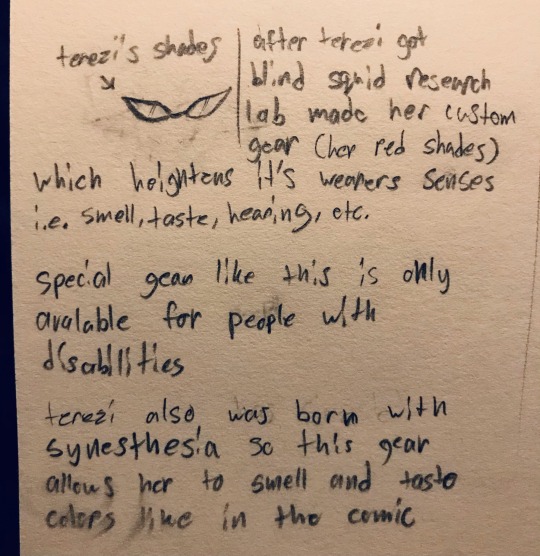 terezi's shades
after terezi got
blind squid research
lab made her custom
gear (her red shades)
which heightens it's weapers senses
i.e. smell, taste, hearing, etc.
special gear like this is only
avalable for people with
disabilities
terezi also was born with
synesthesia so this gear
allows her to smell and taste
colors like in the comic